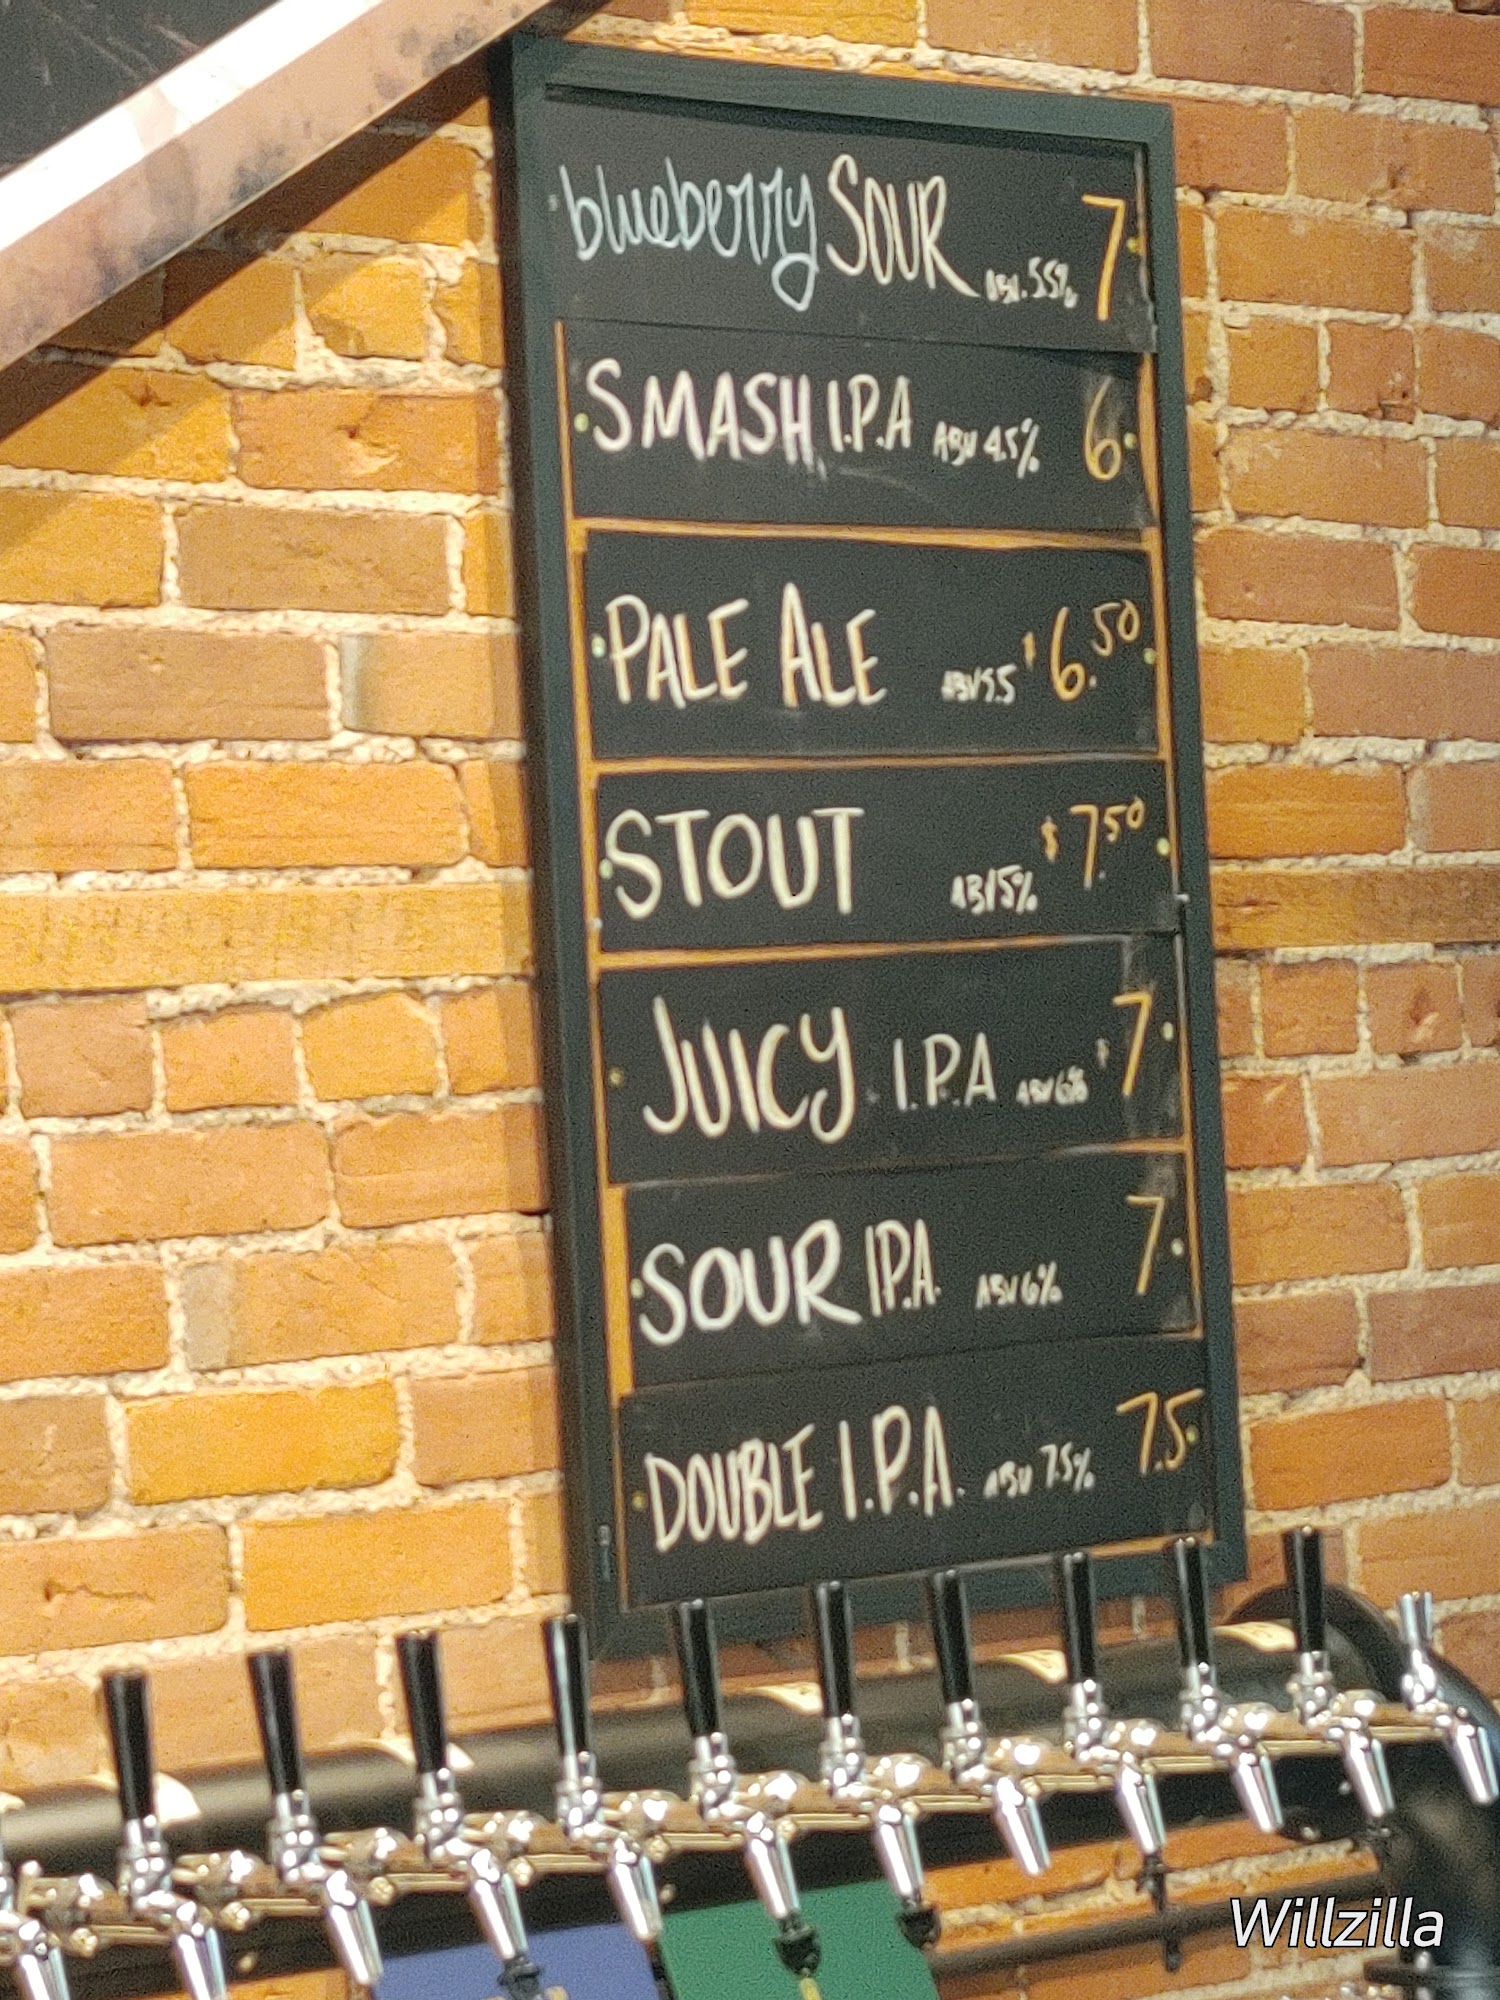 blueberry SOUR ABV. 5.5% 7
SMASH I.P.A ABV 4.5% 6
PALE ALE ABV 5.5 $6.50
STOUT ABV 5% $7.50
JUICY I.P.A ABV 6% $7
SOUR IPA. ABV 6% 7
DOUBLE I.P.A. ABV 7.5% 7.5
Willzilla